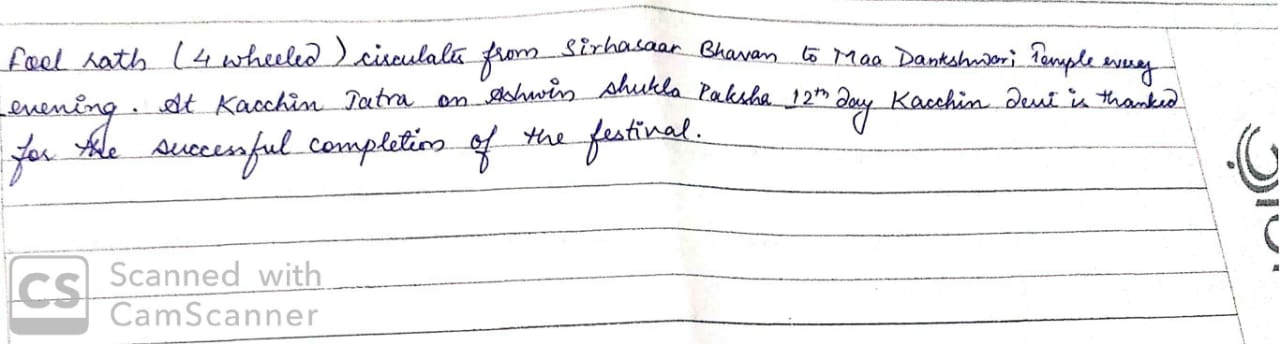 fool rath (4 wheeled) circulates from Sirhasaar Bhavan to Maa Dantshwari Temple every
evening. At Kacchin Jatra on Ashwin Shukla Paksha 12th day Kacchin Devi is thanked
for the successful completion of the festival.
CS Scanned with
CamScanner